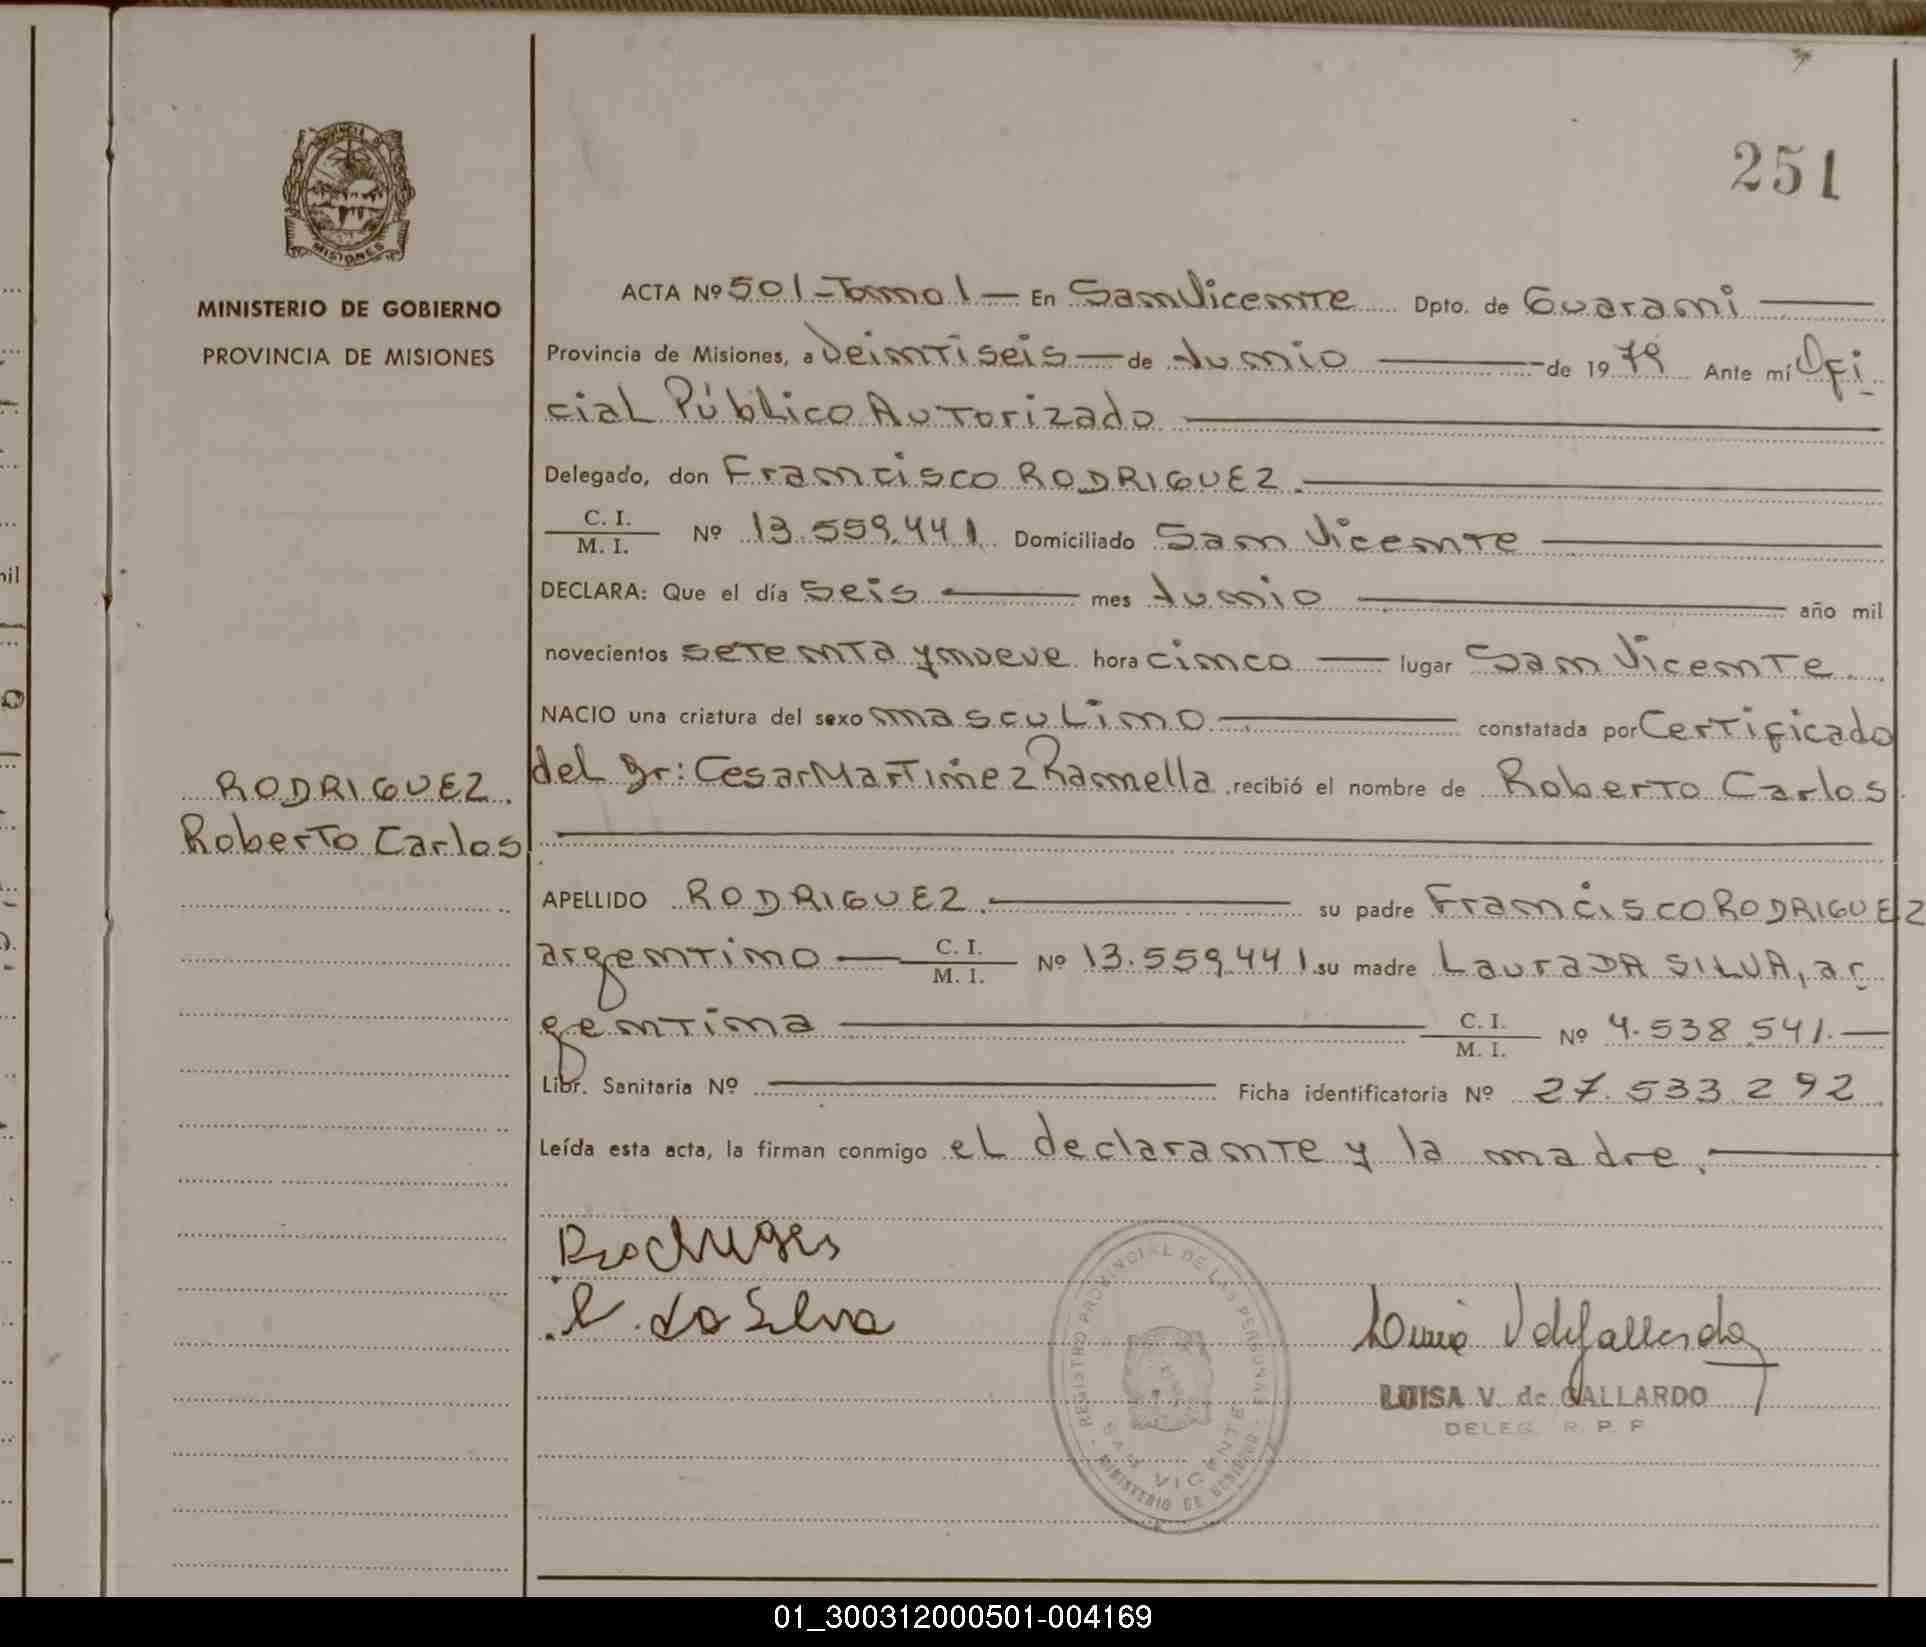 251
MINISTERIO DE GOBIERNO
PROVINCIA DE MISIONES
MISIONES
ACTA Nº 501 - Tomo 1 — En San Vicente Dpto. de Guaraní
Provincia de Misiones, a Veintiseis — de Junio — de 1979 Ante mí Ofi
cial Público Autorizado
Delegado, don Francisco RODRIGUEZ.
C. I.
M. I. Nº 13.559.441 Domiciliado San Vicente
DECLARA: Que el día seis — mes Junio — año mil
novecientos setenta y nueve hora cinco — lugar San Vicente
NACIO una criatura del sexo masculino — constatada por Certificado
del Dr: Cesar Martinez Ramella recibió el nombre de Roberto Carlos
RODRIGUEZ.
Roberto Carlos
APELLIDO RODRIGUEZ. — su padre Francisco RODRIGUEZ
argentino — C. I.
M. I. Nº 13.559.441 su madre Laura DA SILVA, ar
gentina — C. I.
M. I. Nº 4.538.541.—
Libr. Sanitaria Nº — Ficha identificatoria Nº 27.533.292
Leída esta acta, la firman conmigo el declarante y la madre.
L. da Silva
REGISTRO PROVINCIAL DE LAS PERSONAS
SAN VICENTE
MINISTERIO DE GOBIERNO
LUISA V. de GALLARDO
DELEG. R. P. P.
nil
01_300312000501-004169